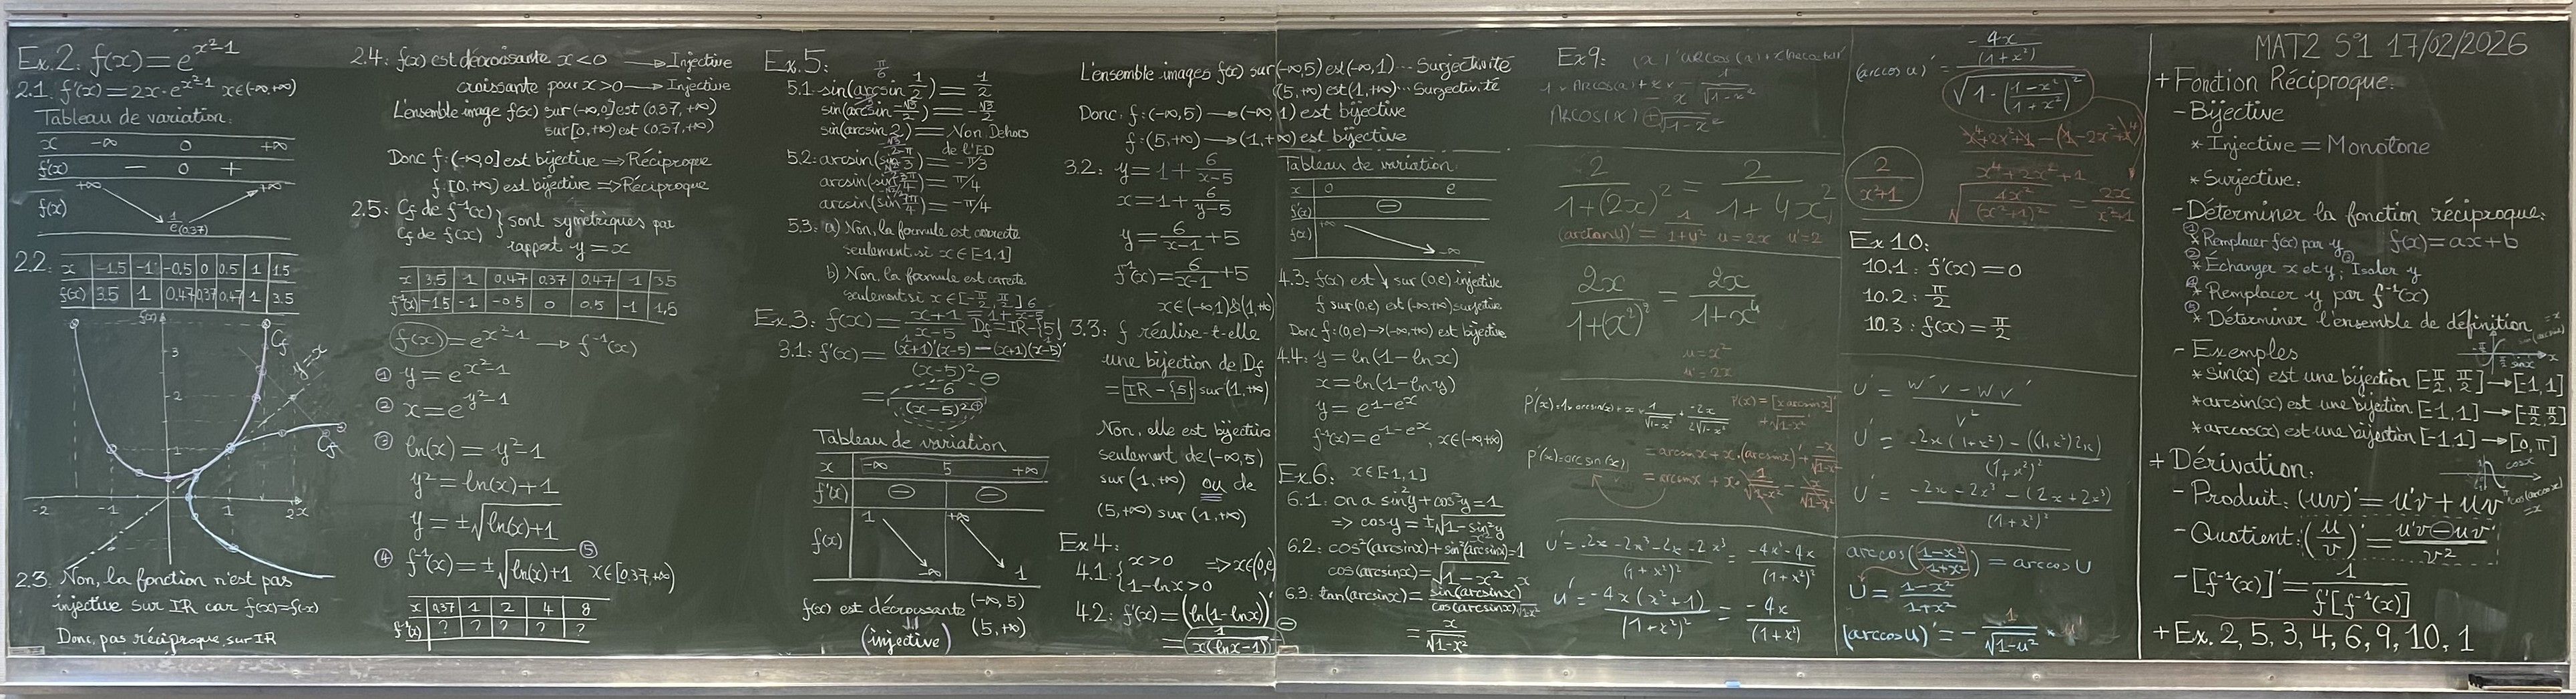 Ex.2: f(x) = e^(x²-1)
2.1: f'(x) = 2x·e^(x²-1) x∈(-∞,+∞)
Tableau de variation:
x -∞ 0 +∞
f'(x) − 0 +
f(x) +∞ 1/e (0.37) +∞
2.2:
x -1.5 -1 -0.5 0 0.5 1 1.5
f(x) 3.5 1 0.47 0.37 0.47 1 3.5
f(x)
3
2
1
-2 -1 1 2 x
Cf
y=x
Cf
2.3: Non, la fonction n'est pas
injective sur IR car f(x)=f(-x)
Donc, pas réciproque sur IR
2.4: f(x) est décroissante x<0 → Injective
croissante pour x>0 → Injective
L'ensemble image f(x) sur (-∞,0] est (0.37,+∞)
sur [0,+∞) est (0.37,+∞)
Donc f: (-∞,0] est bijective ⇒ Réciproque
f: [0,+∞) est bijective ⇒ Réciproque
2.5: Cf de f⁻¹(x)
Cf de f(x)
} sont symétriques par
rapport y = x
x 3.5 1 0.47 0.37 0.47 -1 3.5
f⁻¹(x) -1.5 -1 -0.5 0 0.5 -1 1.5
f(x) = e^(x²-1) → f⁻¹(x)
① y = e^(x²-1)
② x = e^(y²-1)
③ ln(x) = y²-1
y² = ln(x)+1
y = ±√(ln(x)+1)
④ f⁻¹(x) = ±√(ln(x)+1) ⑤ x∈[0.37,+∞)
x 0.37 1 2 4 8
f⁻¹(x) ? ? ? ? ?
Ex.5:
5.1: sin(arcsin 1/2) = 1/2
sin(arcsin -√3/2) = -√3/2
sin(arcsin 2) = Non Dehors
de l'ED
5.2: arcsin(sin -π/3) = -π/3
arcsin(sin 3π/4) = π/4
arcsin(sin 7π/4) = -π/4
5.3: a) Non, la formule est correcte
seulement si x∈[-1,1]
b) Non, la formule est correcte
seulement si x∈[-π/2, π/2]
Ex.3: f(x) = (x+1)/(x-5) = 1 + 6/(x-5) Df = IR-{5}
3.1: f'(x) = ((x+1)'(x-5) − (x+1)(x-5)')/(x-5)²
= -6/(x-5)²
Tableau de variation
x -∞ 5 +∞
f'(x) ⊖ ⊖
f(x) 1 -∞ +∞ 1
f(x) est décroissante (-∞,5)
(5,+∞)
(injective)
L'ensemble images f(x) sur (-∞,5) est (-∞,1)... Surjectivité
(5,+∞) est (1,+∞)... Surjectivité
Donc, f: (-∞,5) → (-∞,1) est bijective
f: (5,+∞) → (1,+∞) est bijective
3.2: y = 1 + 6/(x-5)
x = 1 + 6/(y-5)
y = 6/(x-1) + 5
f⁻¹(x) = 6/(x-1) + 5
x∈(-∞,1)&(1,+∞)
3.3: f réalise-t-elle
une bijection de Df
= IR-{5} sur (1,+∞)
Non, elle est bijective
seulement de (-∞,5)
sur (1,+∞) ou de
(5,+∞) sur (1,+∞)
Ex4:
4.1: { x>0
1-lnx>0 ⇒ x∈(0,e)
4.2: f'(x) = (ln(1-lnx))'
= 1/(x(lnx-1)) ⊖
Tableau de variation
x 0 e
f'(x) ⊖
f(x) +∞ -∞
4.3: f(x) est ↓ sur (0,e) injective
f sur (0,e) est (-∞,+∞) surjective
Donc f: (0,e) → (-∞,+∞) est bijective
4.4: y = ln(1-lnx)
x = ln(1-lny)
y = e^(1-e^x)
f⁻¹(x) = e^(1-e^x), x∈(-∞,+∞)
Ex.6: x∈[-1,1]
6.1: on a sin²y+cos²y=1
⇒ cosy = ±√(1-sin²y)
6.2: cos²(arcsinx)+sin²(arcsinx)=1
cos(arcsinx) = √(1-x²)
6.3: tan(arcsinx) = sin(arcsinx)/cos(arcsinx) x/√(1-x²)
= x/√(1-x²)
Ex9:
2/(1+(2x)²) = 2/(1+4x²)
(arctanu)' = 1/(1+u²) u=2x u'=2
2x/(1+(x²)²) = 2x/(1+x⁴)
u=x²
u'=2x
P'(x)=1×arcsin(x)+x×1/√(1-x²)+(-2x)/(2√(1-x²))
P'(x)=arcsin(x)
P(x)=[x arcsinx]'
+√(1-x²)'
= arcsinx+x·(arcsinx)'+(-x)/√(1-x²)
= arcsinx+x·1/√(1-x²) − x/√(1-x²)
u' = (-2x-2x³-2x-2x³)/(1+x²)² = (-4x³-4x)/(1+x²)²
u' = -4x(x²+1)/(1+x²)² = -4x/(1+x²)
(arccos u)' = (-4x/(1+x²))/√(1-((1-x²)/(1+x²))²)
2/(x²+1)
(x⁴+2x²+1-(1-2x²+x⁴))/(x⁴+2x²+1)
√(4x²/(x²+1)²) = 2x/(x²+1)
Ex10:
10.1: f'(x) = 0
10.2: π/2
10.3: f(x) = π/2
U' = (w'v − wv')/v²
U' = (-2x(1+x²)-((1-x²)2x))/(1+x²)²
U' = (-2x-2x³-(2x+2x³))/(1+x²)²
arccos((1-x²)/(1+x²)) = arccos U
U = (1-x²)/(1+x²)
(arccosu)' = -1/√(1-u²) * u'
MAT2 S°1 17/02/2026
+ Fonction Réciproque:
- Bijective
* Injective = Monotone
* Surjective:
- Déterminer la fonction réciproque:
① * Remplacer f(x) par y f(x)=ax+b
② * Échanger x et y; ③ Isoler y
④ * Remplacer y par f⁻¹(x)
⑤ * Déterminer l'ensemble de définition
- Exemples
* sin(x) est une bijection [-π/2, π/2] → [-1,1]
* arcsin(x) est une bijection [-1,1] → [-π/2, π/2]
* arccos(x) est une bijection [-1,1] → [0,π]
+ Dérivation:
- Produit: (uv)' = u'v + uv'
- Quotient: (u/v)' = (u'v−uv')/v²
- [f⁻¹(x)]' = 1/f'[f⁻¹(x)]
+ Ex. 2, 5, 3, 4, 6, 9, 10, 1